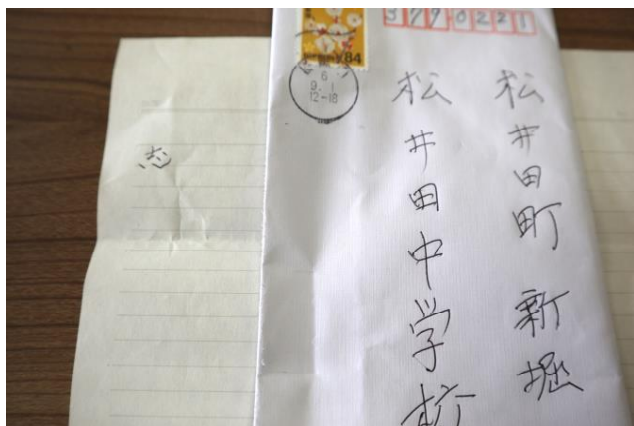 3770221
84
6
9.1
12-18
松井田町 新堀
松井田中学校